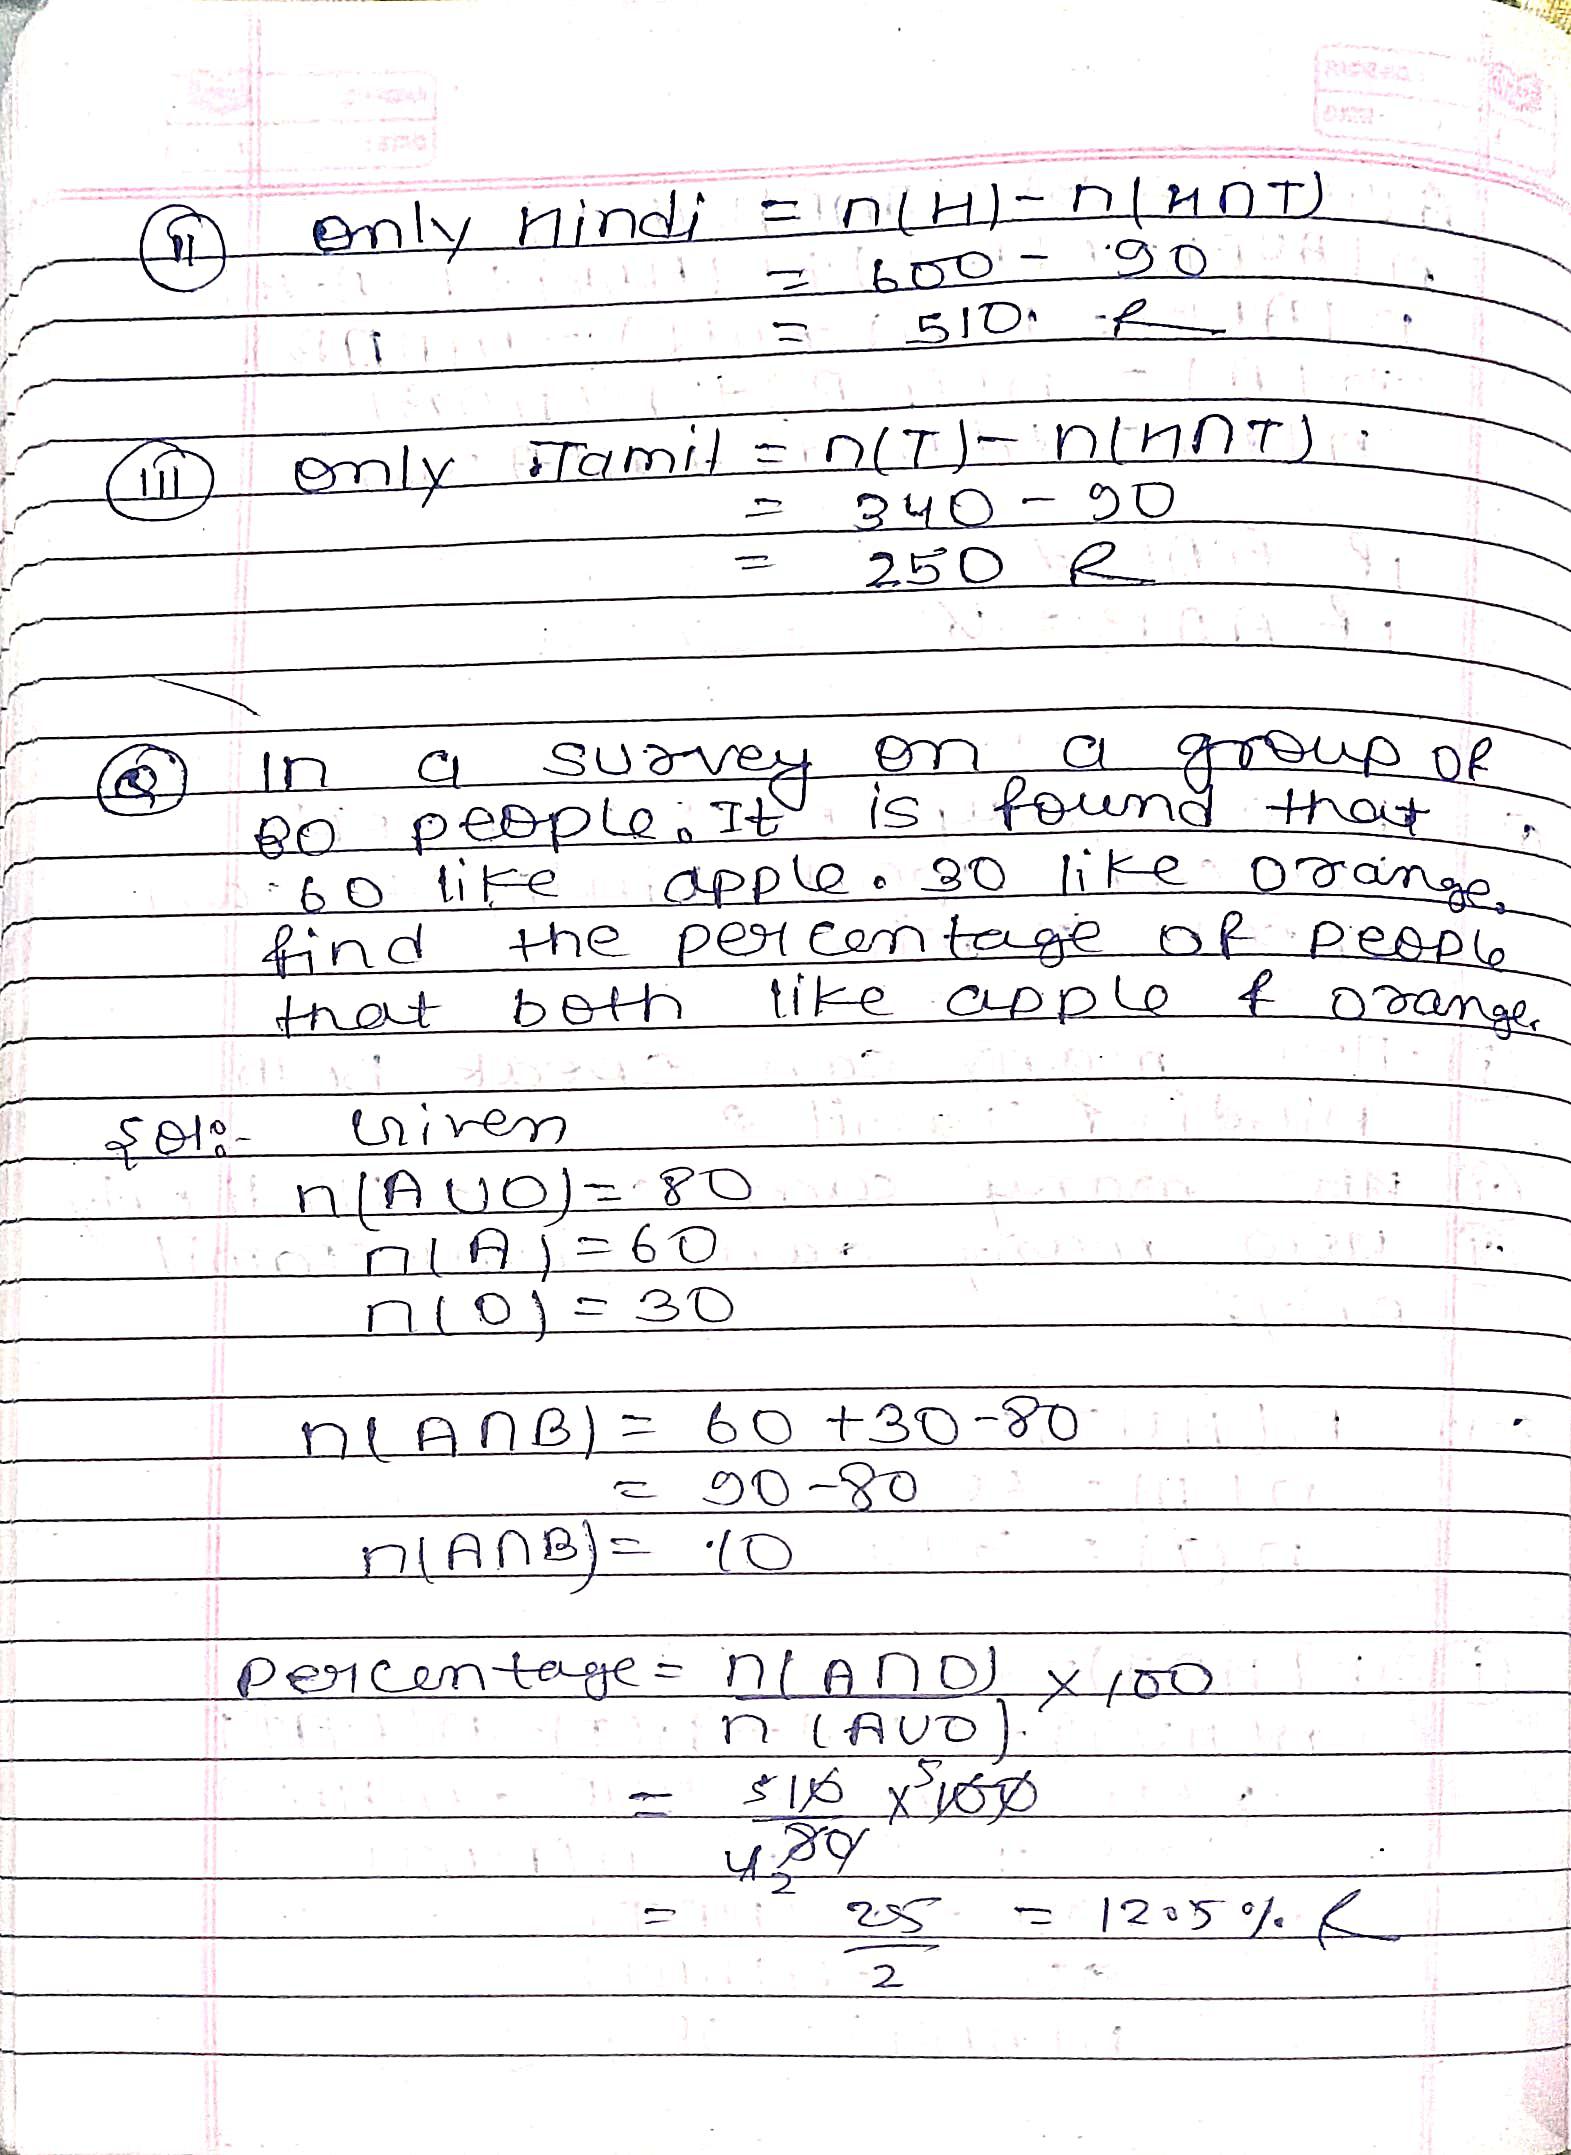 (ii) only Hindi = n(H) - n(H∩T)
= 600 - 90
= 510.
(iii) only Tamil = n(T) - n(H∩T)
= 340 - 90
= 250
Q In a survey on a group of
80 people. It is found that
60 like apple. 30 like orange.
find the percentage of people
that both like apple & orange.
Sol:- Given
n(AUO) = 80
n(A) = 60
n(O) = 30
n(A∩B) = 60 + 30 - 80
= 90 - 80
n(A∩B) = 10
Percentage = n(A∩O) × 100
n(AUO)
= 5 10 × 5 100
4 2 80
= 25 = 12.5%
2